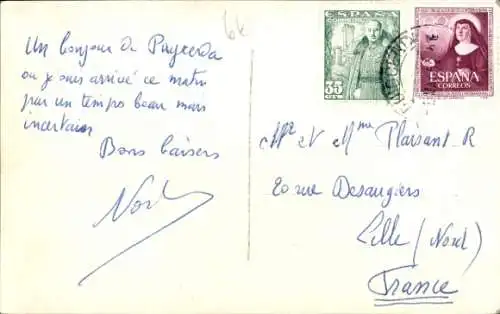 6k
Un bonjour de Puigcerda
ou je suis arrivé ce matin
par un temps beau mais
incertain
Bons baisers
ESPAÑA
CORREOS
35
CTS
ESPAÑA
CORREOS
Mr et Mme Plaisant. R
20 rue Desaugiers
Lille (Nord)
France